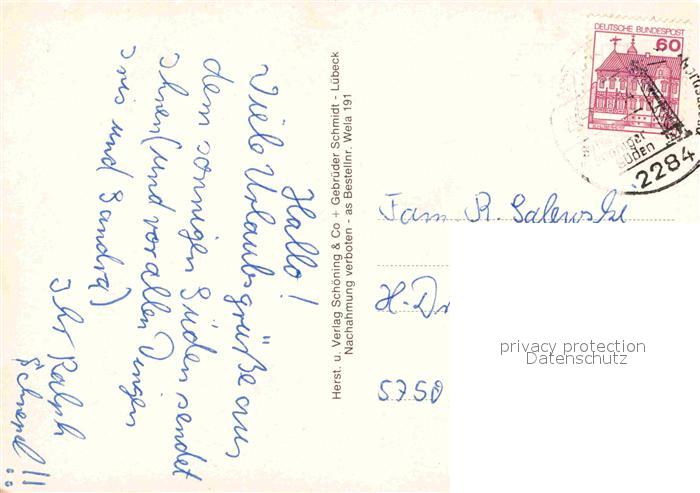 Hallo!
Viele Urlaubsgrüße aus
dem sonnigen Süden sendet
Ihnen (und vor allen Dingen
Iris und Sandra)
Ihr Ralph
Herst. u. Verlag Schöning & Co + Gebrüder Schmidt - Lübeck
Nachahmung verboten - as Bestellnr. Wela 191
DEUTSCHE BUNDESPOST
60
2284
Fam R. Galewske
H-Dr
5750
privacy protection
Datenschutz